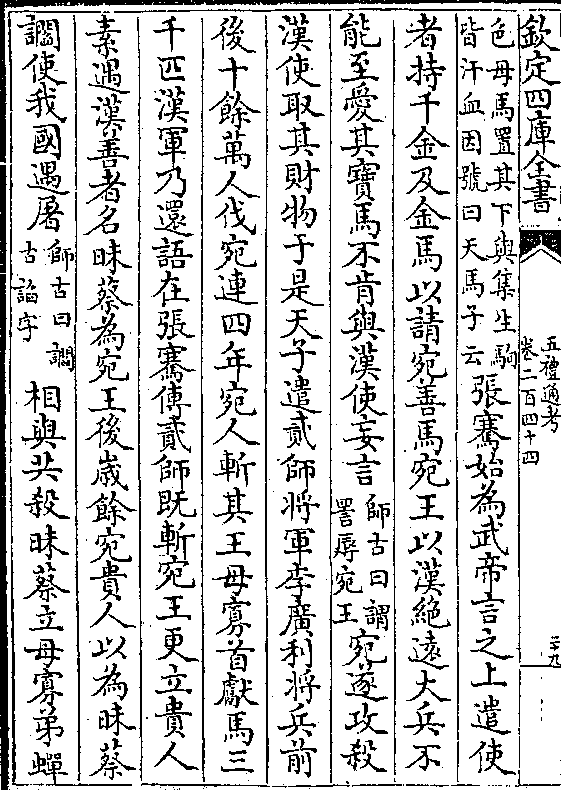 欽定四庫全書
五禮通考
卷二百四十四
二十九
色母馬置其下與集生駒
皆汗血因號曰天馬子云
張騫始為武帝言之上遣使
者持千金及金馬以請宛善馬宛王以漢絶逺大兵不
能至愛其寶馬不肯與漢使妄言
師古曰謂
詈辱宛王
宛遂攻殺
漢使取其財物于是天子遣貳師將軍李廣利將兵前
後十餘萬人伐宛連四年宛人斬其王母寡首獻馬三
千匹漢軍乃還語在張騫傳貳師既斬宛王更立貴人
素遇漢善者名昧蔡為宛王後歳餘宛貴人以為昧蔡
讇使我國遇屠
師古曰讇
古諂字
相與共殺昧蔡立母寡弟蟬